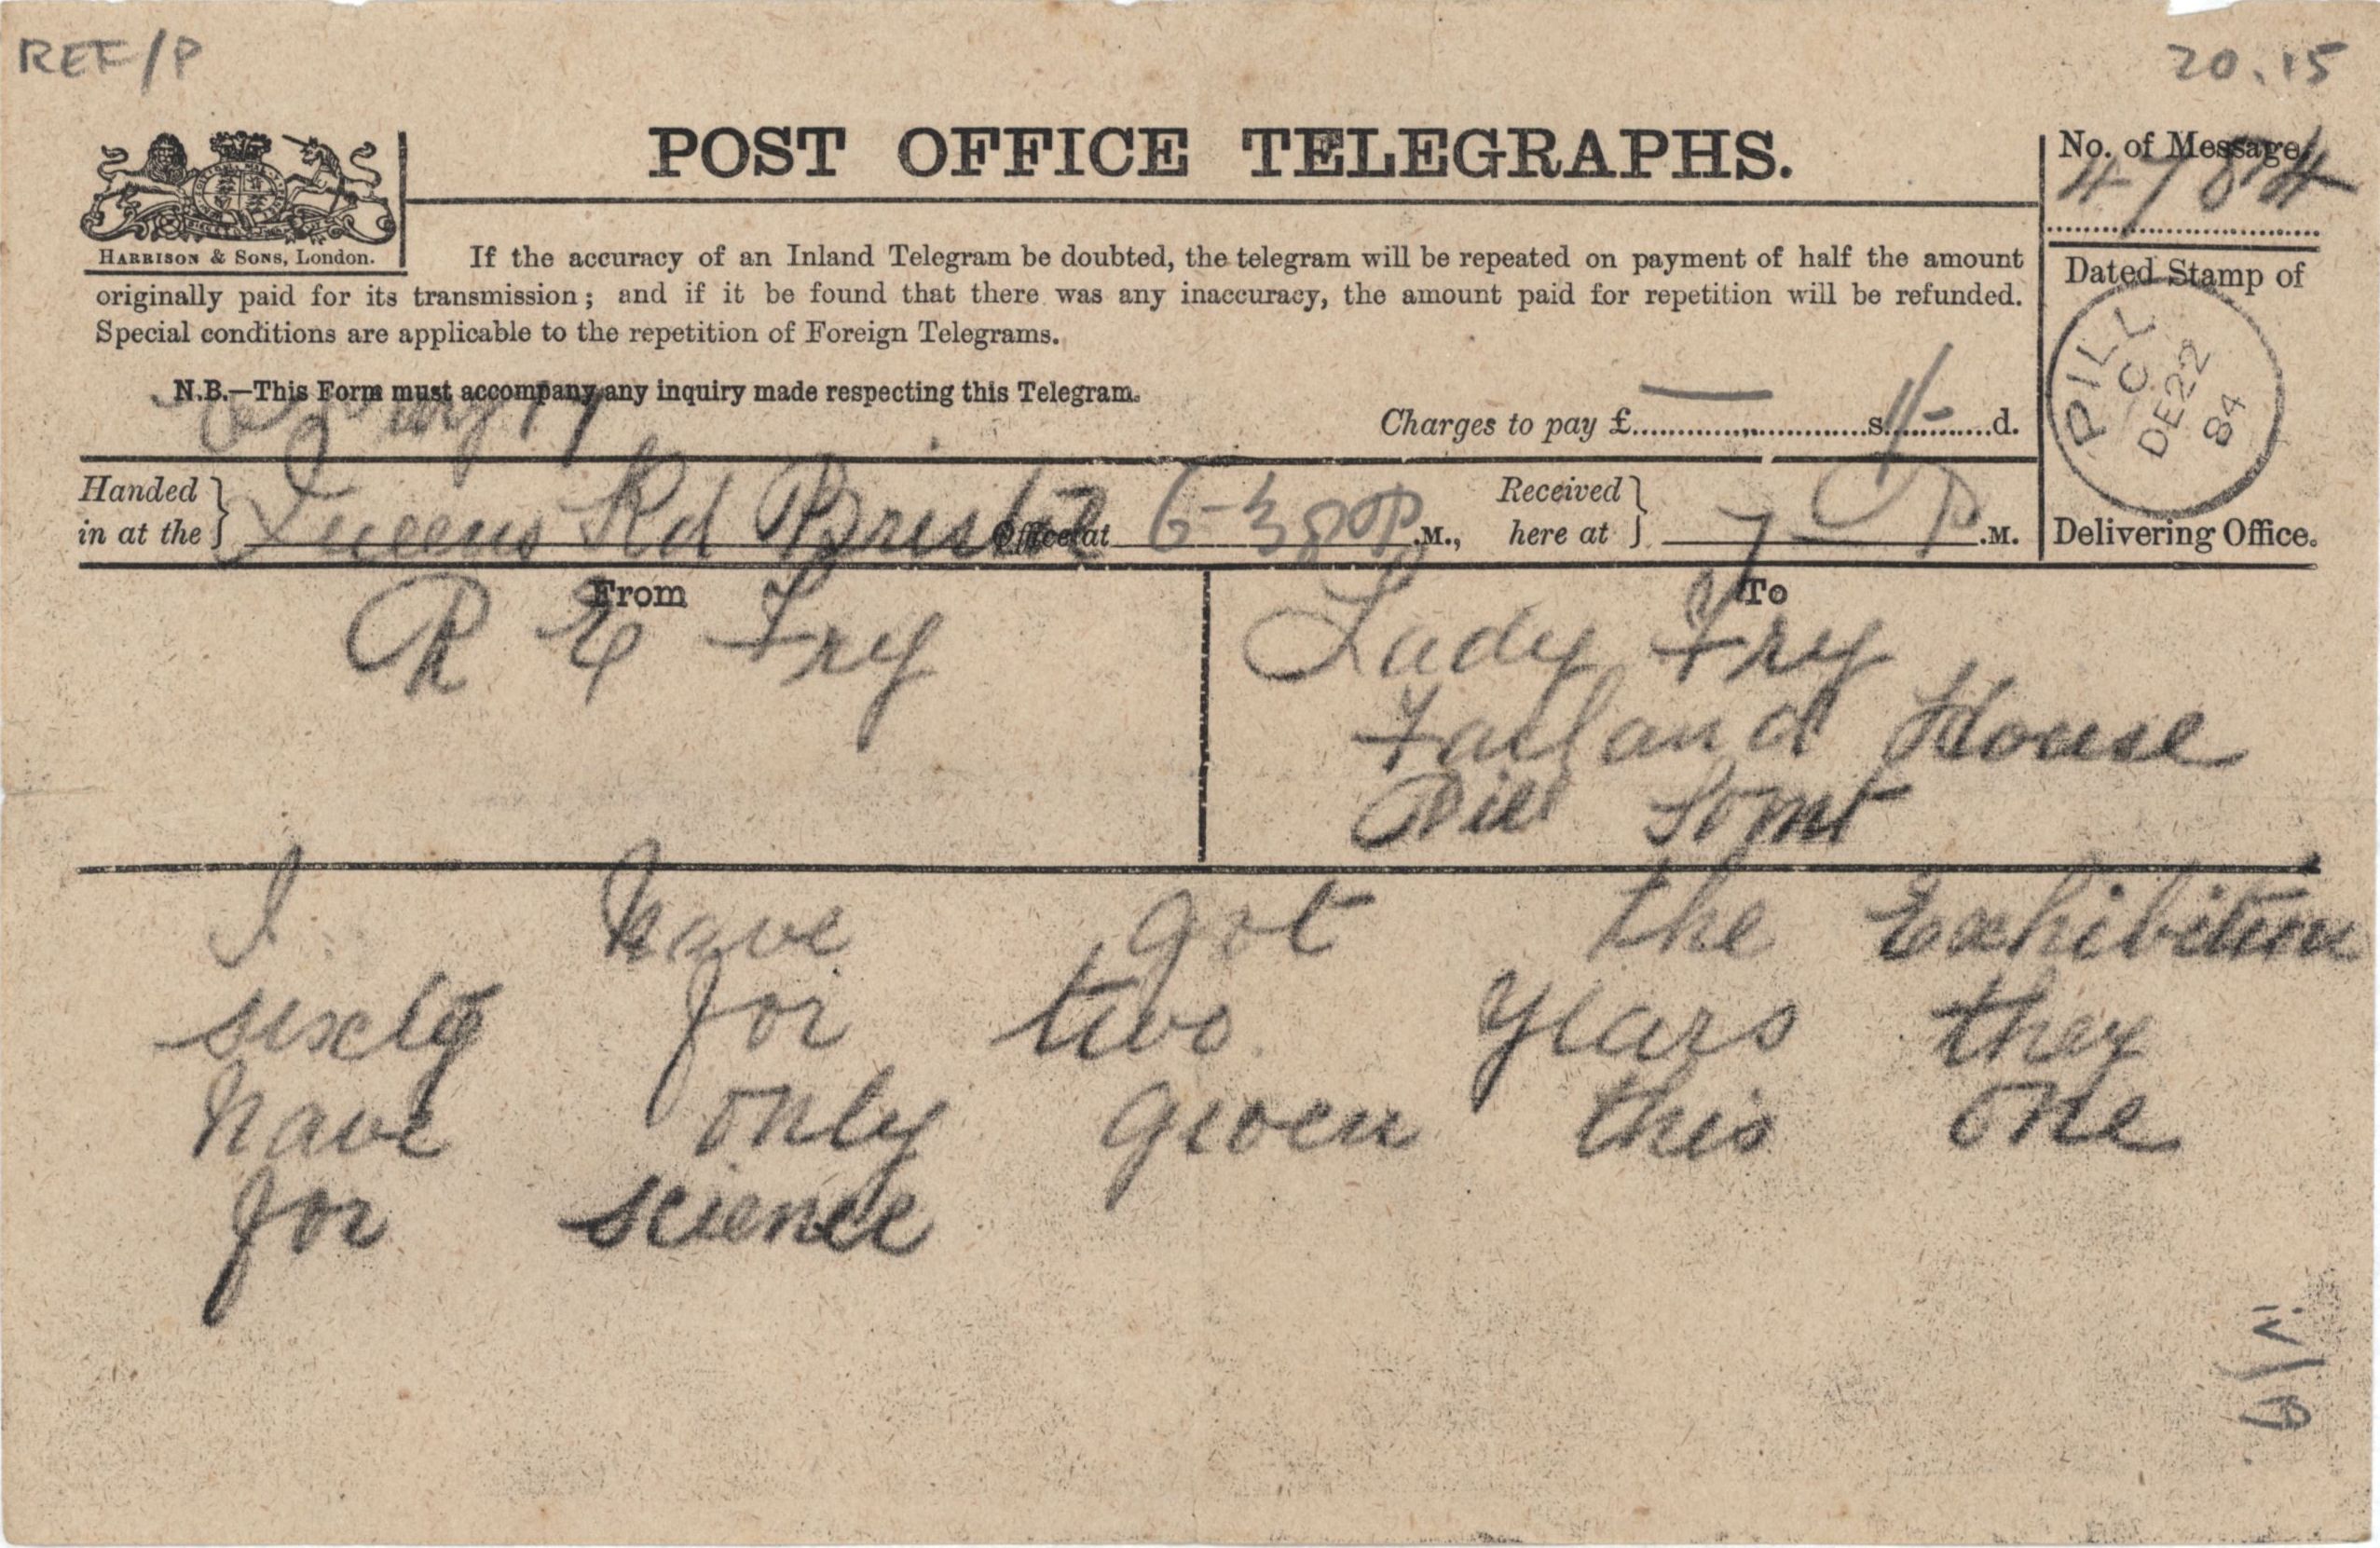 REF/P
20.15
POST OFFICE TELEGRAPHS.
No. of Message
4784
HARRISON & SONS, London.
If the accuracy of an Inland Telegram be doubted, the telegram will be repeated on payment of half the amount
originally paid for its transmission; and if it be found that there was any inaccuracy, the amount paid for repetition will be refunded.
Special conditions are applicable to the repetition of Foreign Telegrams.
N.B.—This Form must accompany any inquiry made respecting this Telegram.
Charges to pay £ — s. 1/- d.
Dated Stamp of
PILL
C
DE 22
84
Delivering Office.
Handed in at the } Queens Rd Bristol Office at 6-38 P.M., Received here at } 7 P.M.
From
R E Fry
To
Lady Fry
Failand House
Pill Somt
I have got the Exhibition
sixty for two years they
have only given this one
for science